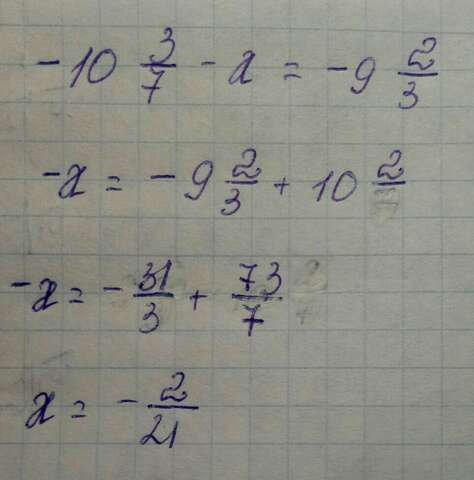 -10 3/7 - x = -9 2/3
-x = -9 2/3 + 10 2/
-x = -31/3 + 73/7
x = -2/21